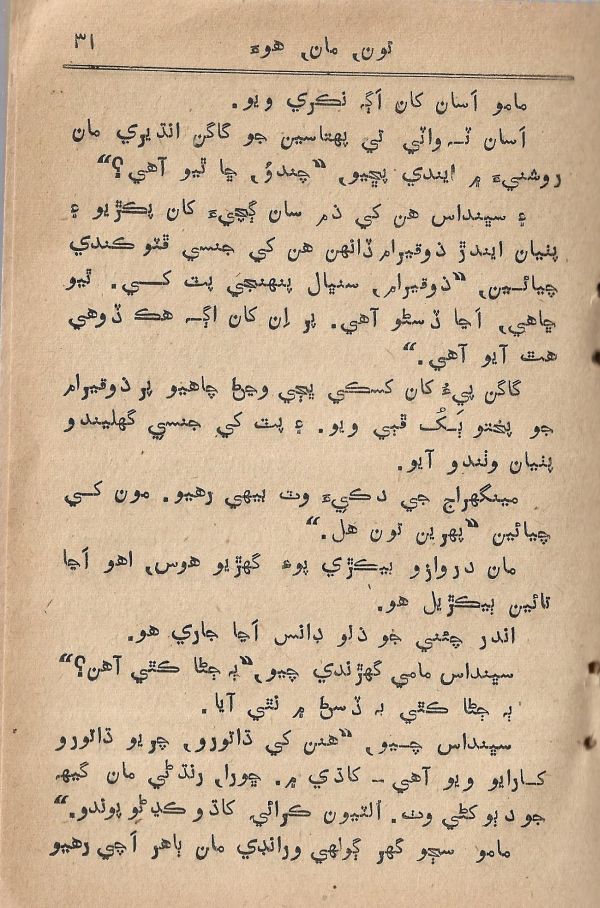 تون, مان, هوءَ ۳۱
مامو اَسان کان اَڳ نڪري ويو.
اَسان ٽـہ واٽي تي پهتاسين جو گاگن انڌيري مان
روشنيءَ ۾ ايندي پڇيو, ”چندوُ, ڇا ٿيو آهي؟“
۽ سڀنداس هن کي ڌم سان ڳچيءَ کان پڪڙيو ۽
پٺيان ايندڙ ڌوقيرام ڏانهن هن کي جنسي ڦٽو ڪندي
چيائـين, ”ذوقيرام, سنڀال پنهنجي پٽ کـي. ٿيو
ڇاهي, اَڃا ڏسڻو آهي. پر اِن کان اڳـہ هڪ ڏوهي
هٿ آيو آهي.“
گاگن پيءُ کان کسڪي ڀڃي وڃڻ چاهيو پر ذوقيرام
جو پختو ٻَـڪُ ڦٻي ويو. ۽ پٽ کي جنسي گهليندو
پٺيان وٺندو آيو.
مينگهراج جي دڪيءَ وٽ بيهي رهيو. مون کـي
چيائين ”پهرين تون هل.“
مان دروازو بيڪڙي پوءِ گهڙيو هوس, اهو اَڃا
تائين ٻيڪڙيل هو.
اندر چئني جو ذلو ڊانس اَڃا جاري هو.
سڀنداس مامي گهڙندي چيو,”ٻہ ڄڻا ڪٿي آهن؟“
ٻہ ڄڻا ڪٿي بہ ڏسڻ ۾ نٿي آيا.
سڀنداس چـيو, ”هنن کي ڌاتورو, چريو ڌاتورو
کـارايو ويو آهي - کاڌي ۾. ڇورا, رنڌڻي مان گيهہ
جو دٻو کڻي وٺ. اُلٽيون ڪرائي کاڌو ڪڍڻو پوندو.“
مامو سڄو گهر ڳولهي ورانڊي مان ٻاهر اَچي رهيو